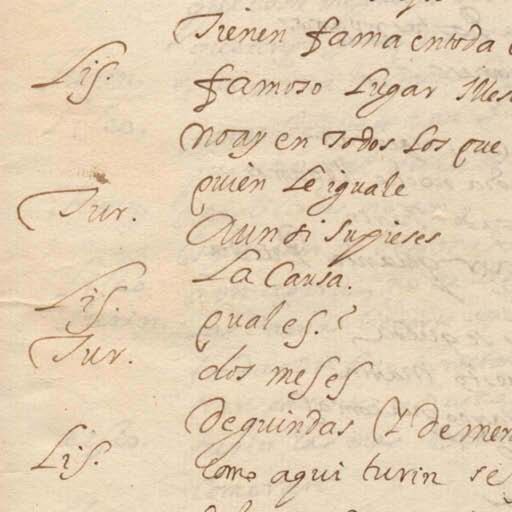 Tienen fama en toda
Lis. famoso Lugar Illes
no ay en todos los que
quien le iguale
Tur. Aun si supieses
La Causa.
Lis. qual es?
Tur. dos meses
De guindas Y de mer
Lis. Como aqui turin se